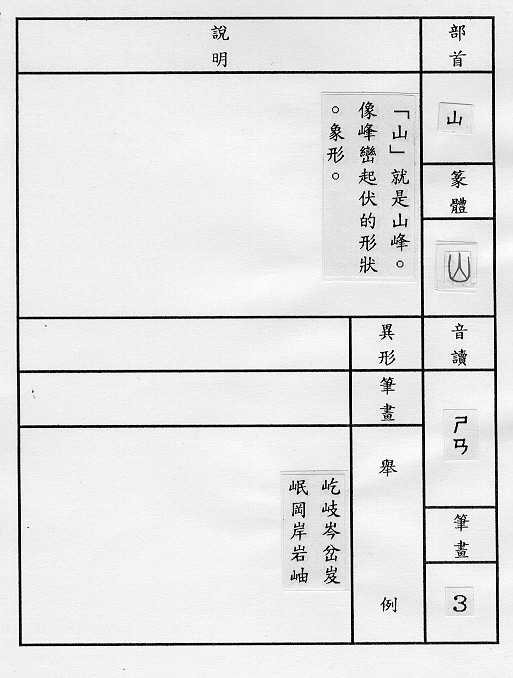 部首
山
篆體
音讀
ㄕㄢ
筆畫
3
說明
「山」就是山峰。
像峰巒起伏的形狀
。象形。
異形
筆畫
舉例
屹岐岑岔岌
岷岡岸岩岫